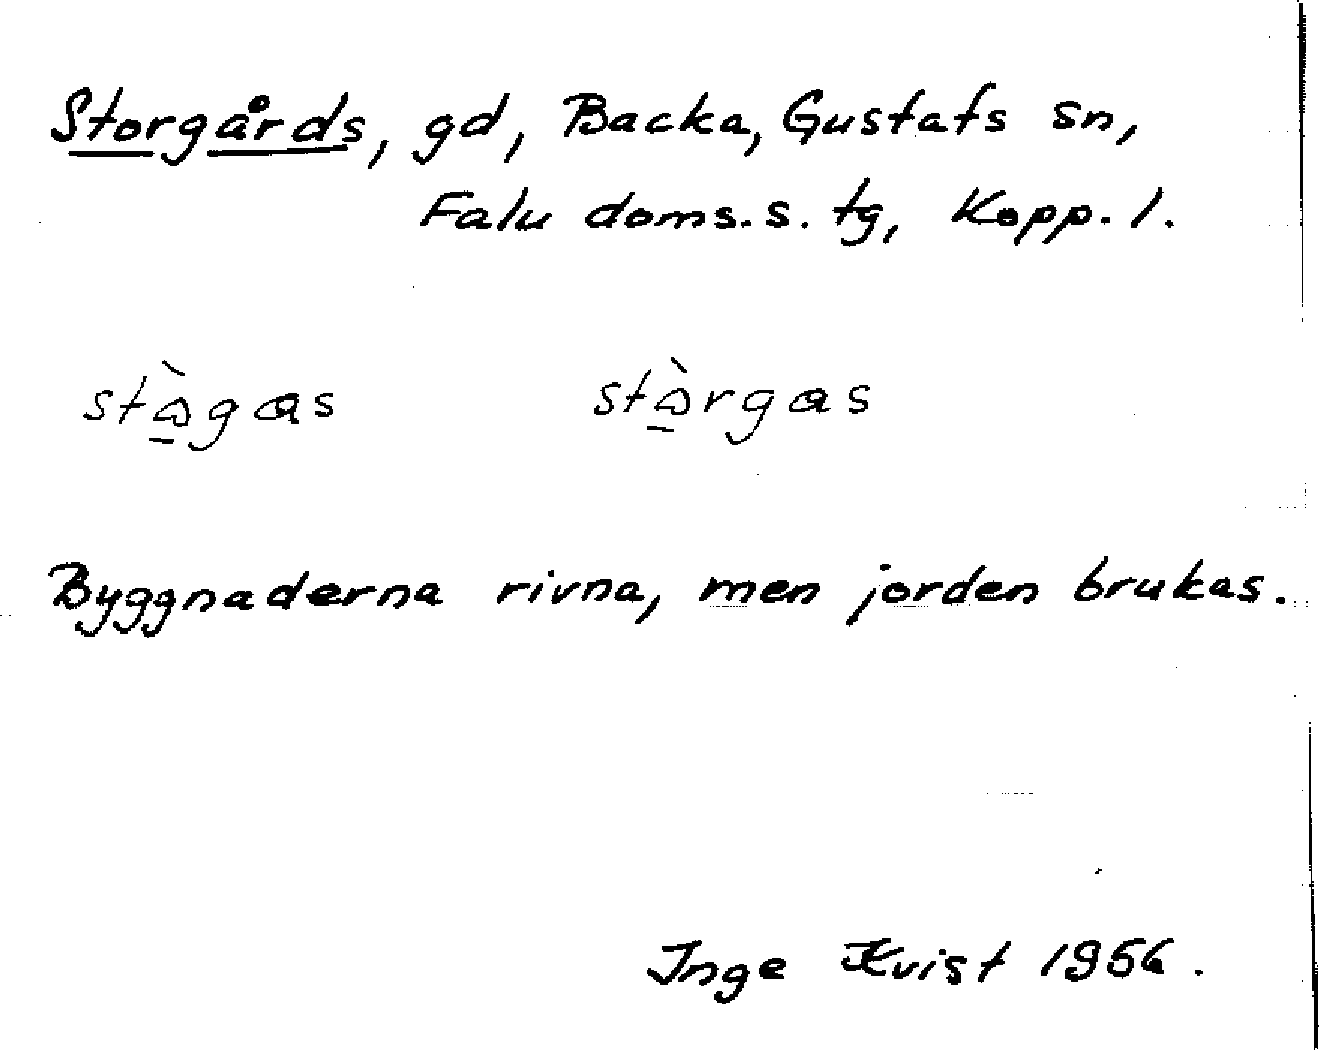 Storgårds, gd, Backa, Gustafs sn,
Falu doms. s. tg, Kopp. l.
stὼ̲gas stὼ̲rgas
Byggnaderna rivna, men jorden brukas.
Inge Kvist 1956.